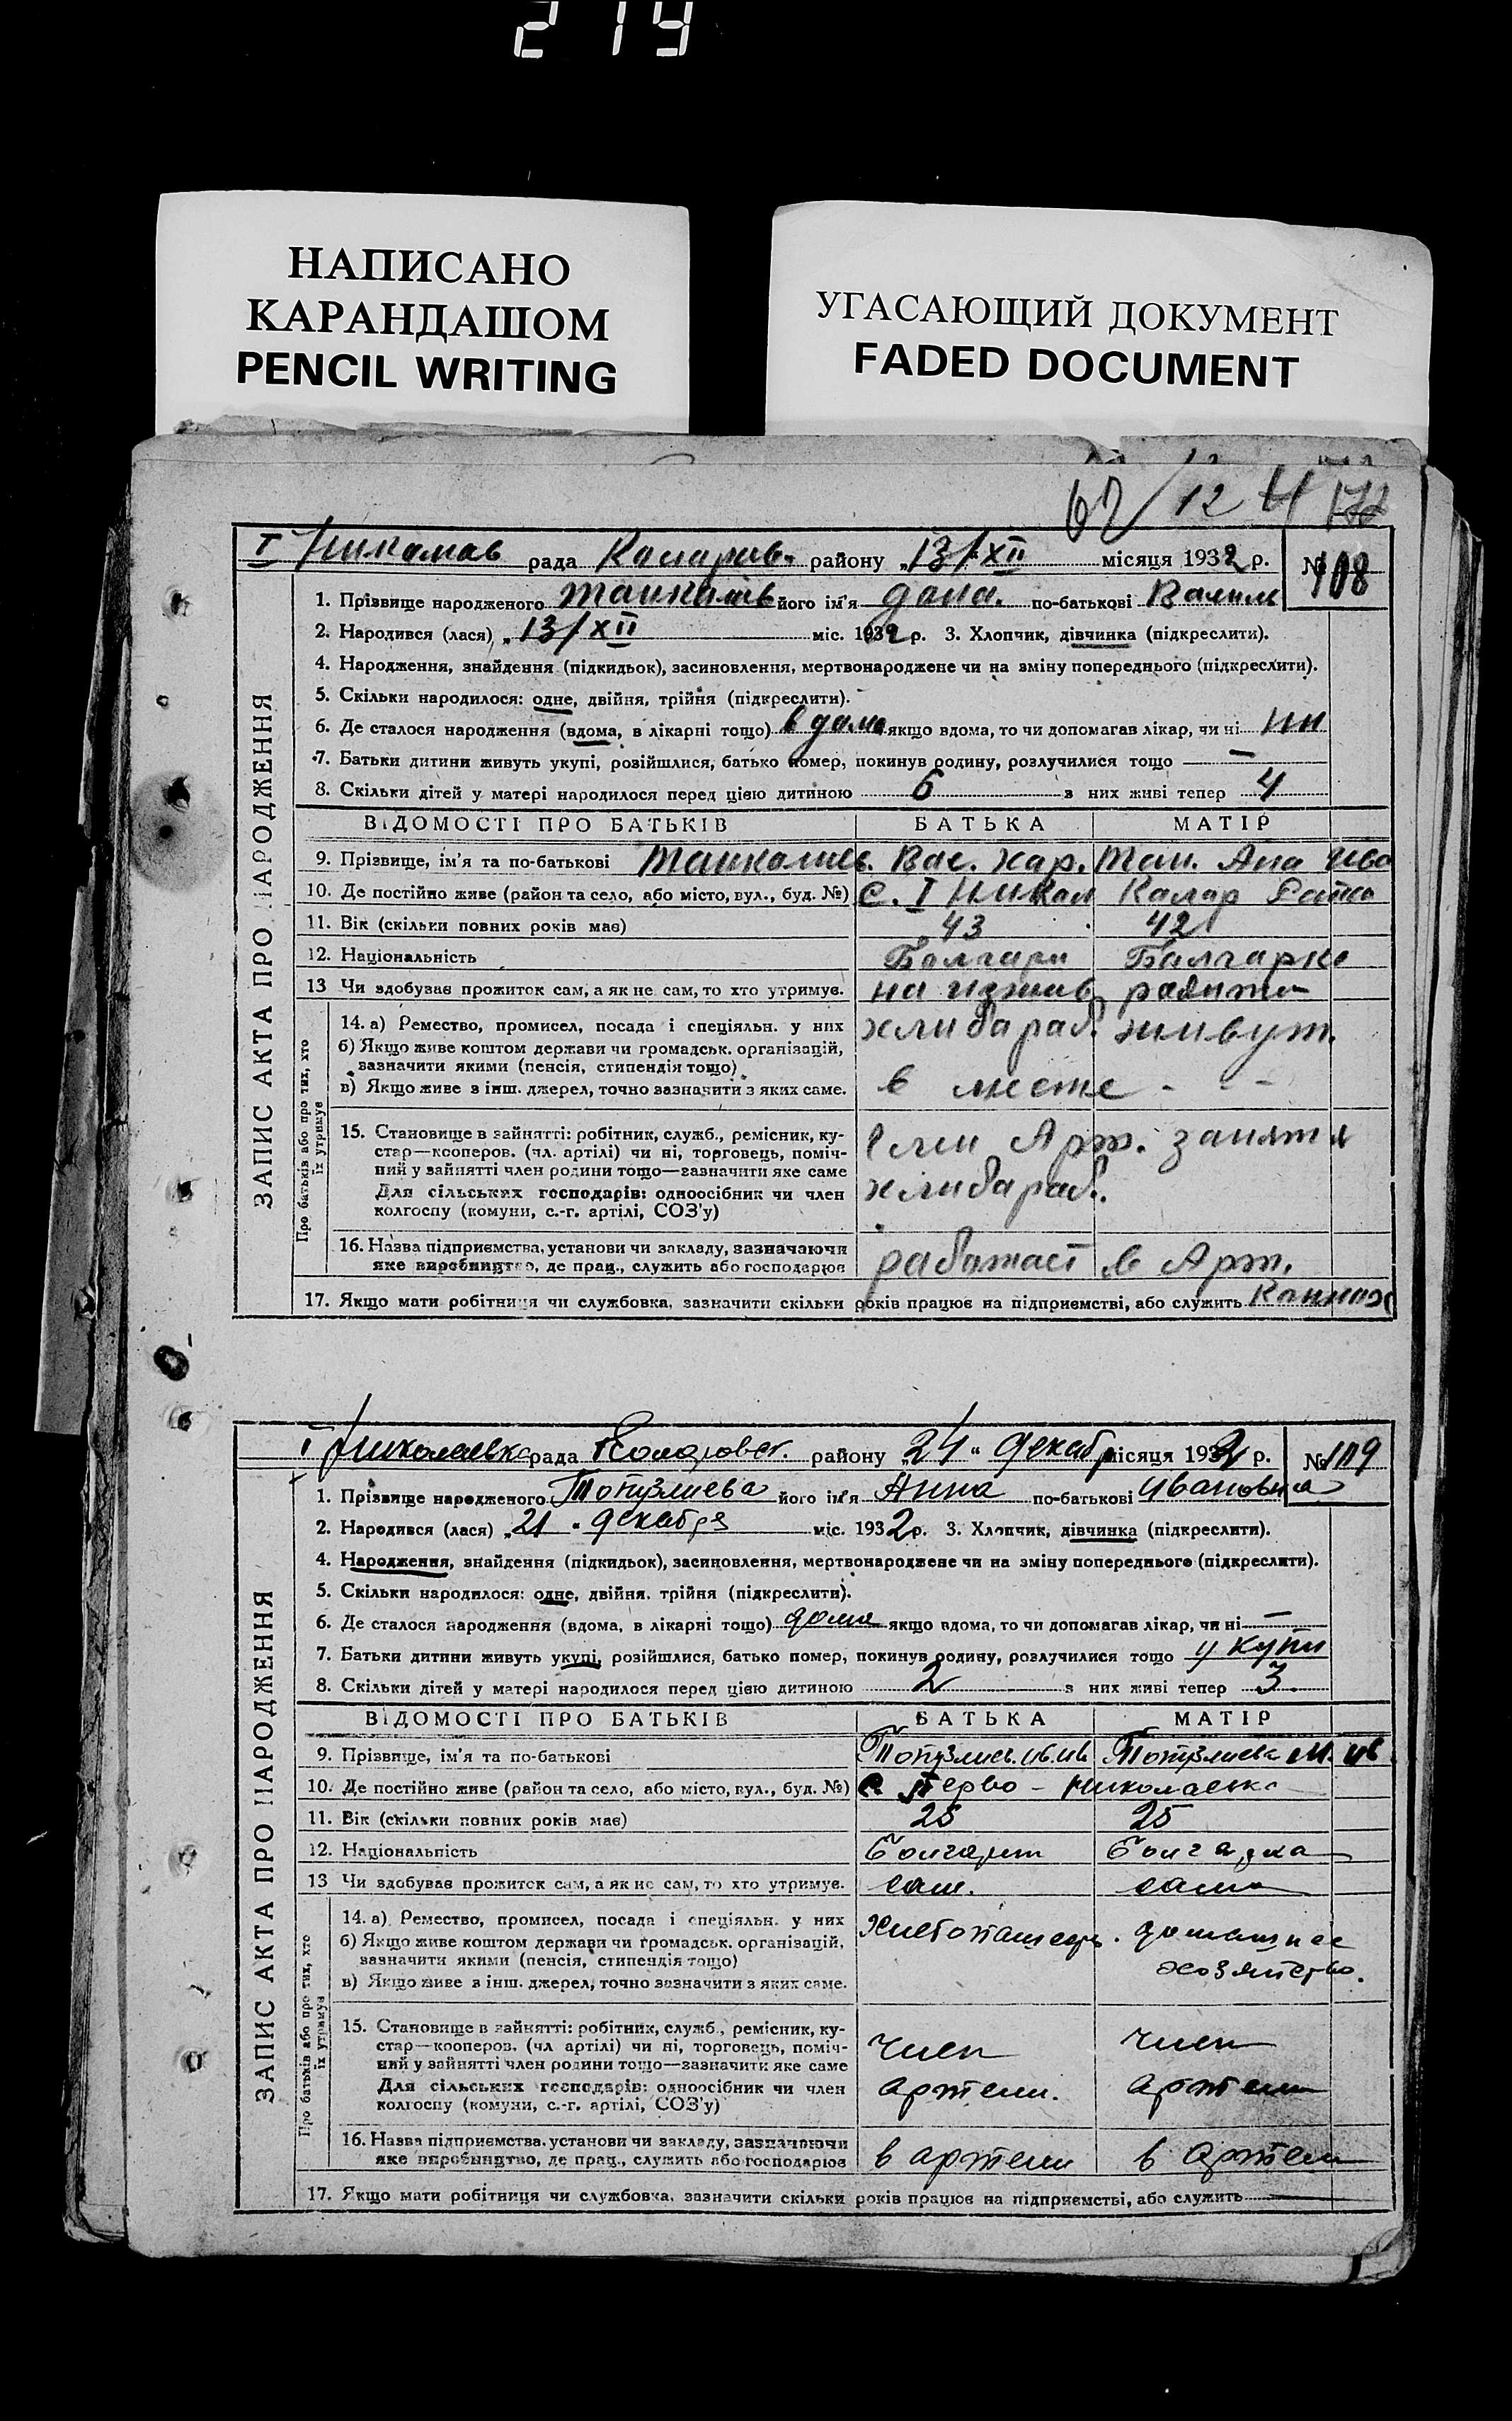 219
НАПИСАНО
КАРАНДАШОМ
PENCIL WRITING
УГАСАЮЩИЙ ДОКУМЕНТ
FADED DOCUMENT
62/12
I рада району „13/XII місяця 1932 р. № 108
1. Прізвище народженого його ім'я дона. по-батькові
2. Народився (лася) „13/XII міс. 1932 р. 3. Хлопчик, дівчинка (підкреслити).
4. Народження, знайдення (підкидьок), засиновлення, мертвонароджене чи на зміну попереднього (підкреслити).
5. Скільки народилося: одне, двійня, трійня (підкреслити).
6. Де сталося народження (вдома, в лікарні тощо) в дома якщо вдома, то чи допомагав лікар, чи ні
7. Батьки дитини живуть укупі, розійшлися, батько помер, покинув родину, розлучилися тощо —
8. Скільки дітей у матері народилося перед цією дитиною 6 з них живі тепер 4
ЗАПИС АКТА ПРО НАРОДЖЕННЯ
ВІДОМОСТІ ПРО БАТЬКІВ БАТЬКА МАТІР
9. Прізвище, ім'я та по-батькові Вас. Хар. Ива
10. Де постійно живе (район та село, або місто, вул., буд. №) С. I Никол Колар
11. Вік (скільки повних років має) 43 42
12. Національність Болгари Балгарке
13 Чи здобуває прожиток сам, а як не сам, то хто утримує.
Про батьків або про тих, хто їх утримує
14. а) Ремество, промисел, посада і спеціяльн. у них хлибараб. живут.
б) Якщо живе коштом держави чи громадськ. організацій,
зазначити якими (пенсія, стипендія тощо)
в) Якщо живе з інш. джерел, точно зазначити з яких саме. в месте - - -
15. Становище в зайнятті: робітник, служб., ремісник, ку-
стар—кооперов. (чл. артілі) чи ні, торговець, поміч- Арт. заняття
ний у зайнятті член родини тощо—зазначити яке саме
Для сільських господарів: одноосібник чи член хлибараб.
колгоспу (комуни, с.-г. артілі, СОЗ'у)
16. Назва підприємства, установи чи закладу, зазначаючи работает в Арт.
яке виробництво, де прац., служить або господарює
17. Якщо мати робітниця чи службовка, зазначити скільки років працює на підприємстві, або служить
I Николаевка рада Коларовск. району „24" декаб місяця 1932 р. № 109
1. Прізвище народженого Топузлиева його ім'я Анна по-батькові Ивановна
2. Народився (лася) „21" декабря міс. 1932 р. 3. Хлопчик, дівчинка (підкреслити).
4. Народження, знайдення (підкидьок), засиновлення, мертвонароджене чи на зміну попереднього (підкреслити).
5. Скільки народилося: одне, двійня, трійня (підкреслити).
6. Де сталося народження (вдома, в лікарні тощо) дома якщо вдома, то чи допомагав лікар, чи ні —
7. Батьки дитини живуть укупі, розійшлися, батько помер, покинув родину, розлучилися тощо у купи
8. Скільки дітей у матері народилося перед цією дитиною 2 з них живі тепер 3
ЗАПИС АКТА ПРО НАРОДЖЕННЯ
ВІДОМОСТІ ПРО БАТЬКІВ БАТЬКА МАТІР
9. Прізвище, ім'я та по-батькові Топузлиев. ив. ив Топузлиева М. ив
10. Де постійно живе (район та село, або місто, вул., буд. №) с. Перво - Николаевка
11. Вік (скільки повних років має) 25 25
12. Національність Болгарин Болгарка
13 Чи здобуває прожиток сам, а як не сам, то хто утримує. сам. сама
Про батьків або про тих, хто їх утримує
14. а) Ремество, промисел, посада і спеціяльн. у них Хлебопашец. домашнее
б) Якщо живе коштом держави чи громадськ. організацій,
зазначити якими (пенсія, стипендія тощо) хозяйство.
в) Якщо живе з інш. джерел, точно зазначити з яких саме.
15. Становище в зайнятті: робітник, служб., ремісник, ку-
стар—кооперов. (чл артілі) чи ні, торговець, поміч- член член
ний у зайнятті член родини тощо—зазначити яке саме
Для сільських господарів: одноосібник чи член артели. артели
колгоспу (комуни, с.-г. артілі, СОЗ'у)
16. Назва підприємства, установи чи закладу, зазначаючи в артели в артели
яке виробництво, де прац., служить або господарює
17. Якщо мати робітниця чи службовка, зазначити скільки років працює на підприємстві, або служить —